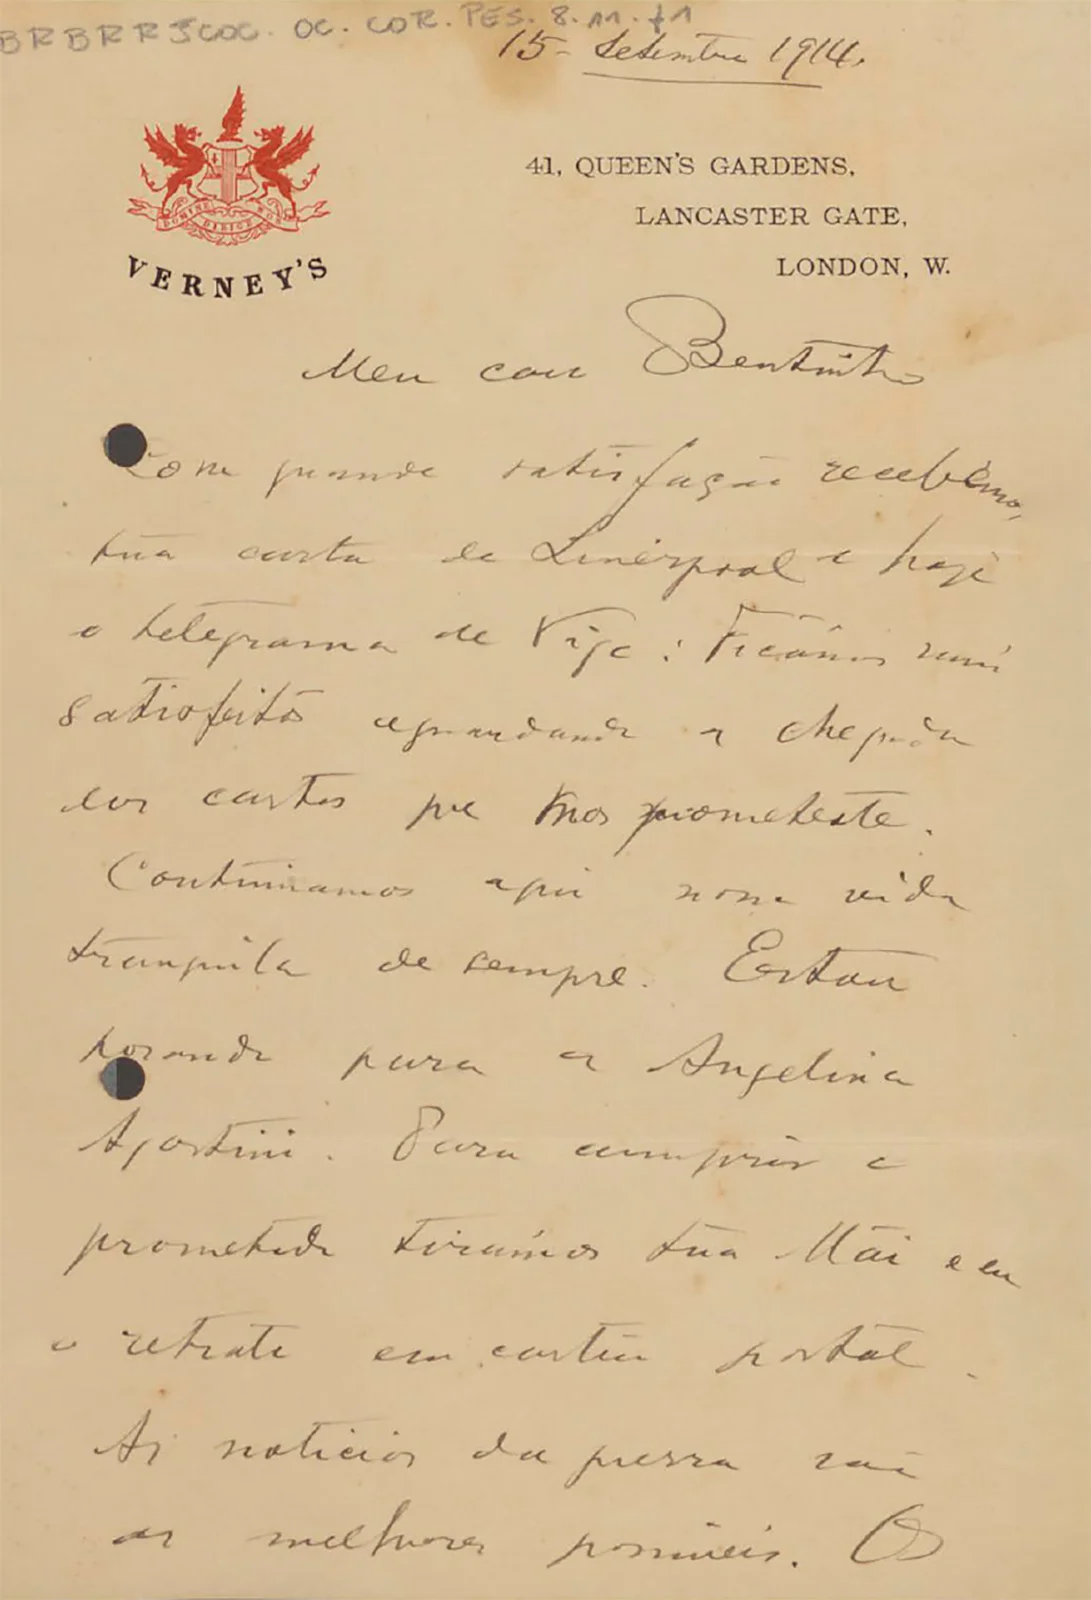 BR BRRJCOC. OC. COR. PES. 8. 11. 71
15 - Setembro 1914.
DOMINE DIRIGE NOS
VERNEY'S
41, QUEEN'S GARDENS,
LANCASTER GATE,
LONDON, W.
Meu caro Bentinho
Com grande satisfação recebemos,
tua carta de Liverpool e hoje
o telegrama de Vigo: Ficámos
satisfeitos aguardando a chegada
das cartas que nos prometeste.
Continuamos aqui nossa vida
tranquila de sempre. Estou
posando para a Angelina
Agostini. Para cumprir o
prometido tirámos tua Mãi e eu
o retrato em cartão postal.
As noticias da guerra são
as melhores possiveis. Os